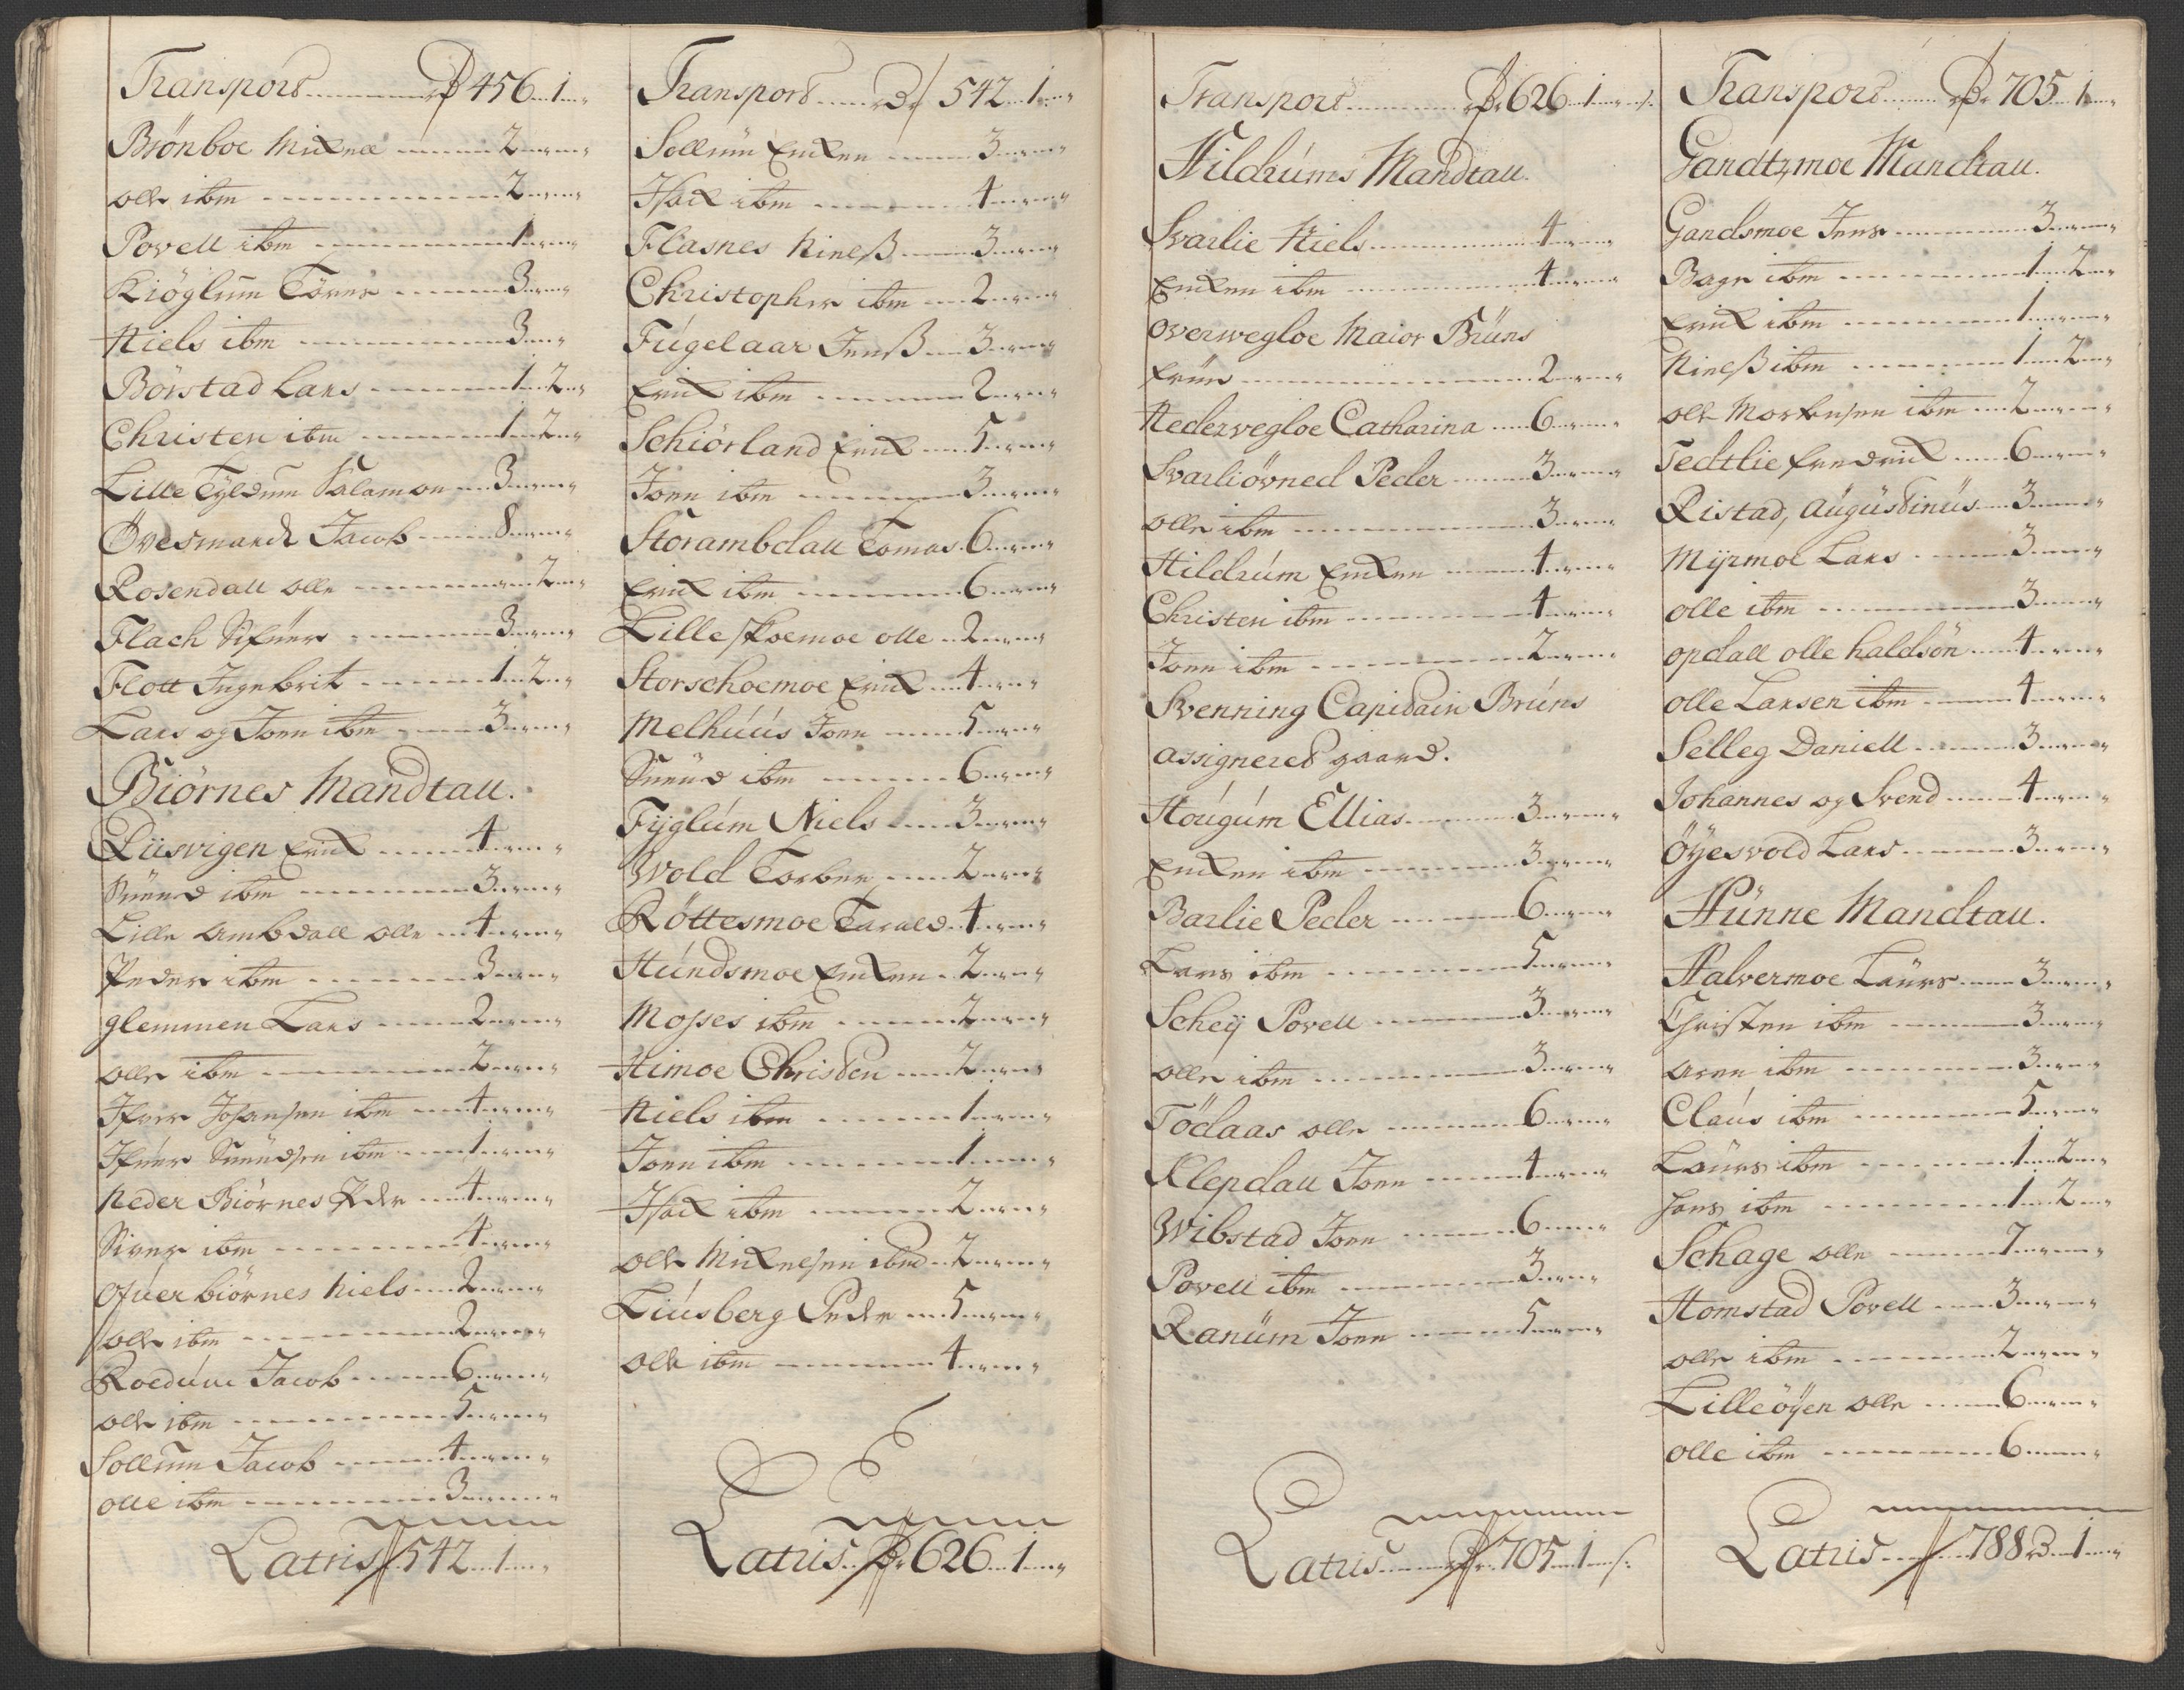 Transpord ........ Rd 456..1..
Brönboe Mickell ...... 2
olle ibm ...... 2
Povell ibm ...... 1
Kiöglum Törris ...... 3
Niels ibm ...... 3
Börstad Lars ...... 1..2
Christen ibm ...... 1..2
Lille Tyldum Salamon ... 3
Övesmarck Jacob ...... 8
Rosendall olle ...... 2
Flach Sifuer ...... 3
Flott Ingebrit ...... 1..2
Lars og Jonn ibm ...... 3
Biörnes Mandtall.
Diisvigen Erick ...... 4
Siuend ibm ...... 3
Lille Ambdall olle ... 4
Peder ibm ...... 3
glemmen Lars ...... 2
olle ibm ...... 2
Ifver Johansen ibm ... 4
Ifuer Suendsen ibm ... 1
Neder Biörnes Peder ... 4
Siver ibm ...... 4
Ofuer biörnes Niels ... 2
olle ibm ...... 2
Roedum Jacob ...... 6
olle ibm ...... 5
Sollum Jacob ...... 4
olle ibm ...... 3
Latris 542..1..
Transpord ...... Rd 542..1..
Sollum Encken ...... 3
Isack ibm ...... 4
Flasnes Nineß ...... 3
Christopher ibm ... 2
Fugelaar Jenß ... 3
Erick ibm ...... 2
Schiörland Erick ... 5
Jonn ibm ...... 3
Storambdall Tomas . 6
Erick ibm ...... 6
Lille skoemoe olle .. 2
Storschoemoe Erick ... 4
Melhuus Jonn ...... 5
Suend ibm ...... 6
Fyglum Niels ...... 3
Wold Torber ...... 2
Röttesmoe Tarald . 4
Hundsmoe Encken .. 2
Mosses ibm ...... 2
Himoe Christen ...... 2
Niels ibm ...... 1
Jonn ibm ...... 1
Isack ibm ...... 2
olle Mickelsen ibid .. 2
Liusberg Peder ... 5
olle ibm ...... 4
Latris.. Rd 626..1..
Transport ........ Rd 626..1..
Hildrums Mandtall.
Svarlie Niels ...... 4
Encken ibm ...... 4
Overwegloe Maior Brüns
Frue ...... 2
Nedervegloe Catharina .... 6
Svarliövned Peder ...... 3
olle ibm ...... 3
Hildrum Encken ...... 4
Christen ibm ...... 4
Jonn ibm ...... 2
Svenning Capidain Brüns
assignered gaard.
Hougum Ellias ...... 3
Encken ibm ...... 3
Barlie Peder ...... 6
Lars ibm ...... 5
Scheÿ Povell ...... 3
olle ibm ...... 3
Tödaas olle ...... 6
Klepdall Jonn ...... 4
Wibstad Jonn ...... 6
Povell ibm ...... 3
Ranum Jonn ...... 5
Latris ...... Rd 705..1..
Transpord ...... Rd 705..1..
Gandtzmoe Mandtall.
Gandsmoe Jens ...... 3
Bage ibm ...... 1..2
Erick ibm ...... 1
Nineß ibm ...... 1..2
olle Mortensen ibm ... 2
Tedtlie Fredrick ...... 6
Ristad, Augustinus ... 3
Mÿrmoe Lars ...... 3
olle ibm ...... 3
opdall olle haldsön .... 4
olle Larsen ibm ...... 4
Selleg Daniell ...... 3
Johannes og Svend ...... 4
Öÿesvold Lars ...... 3
Hunne Mandtall.
Halvermoe Laurs ...... 3
Christen ibm ...... 3
Aren ibm ...... 3
Claus ibm ...... 5
Laurs ibm ...... 1..2
Hans ibm ...... 1..2
Schage olle ...... 7
Homstad Povell ...... 3
olle ibm ...... 2
Lilleöÿen olle ...... 6
olle ibm ...... 6
Latris ...... 788 Rd 1..